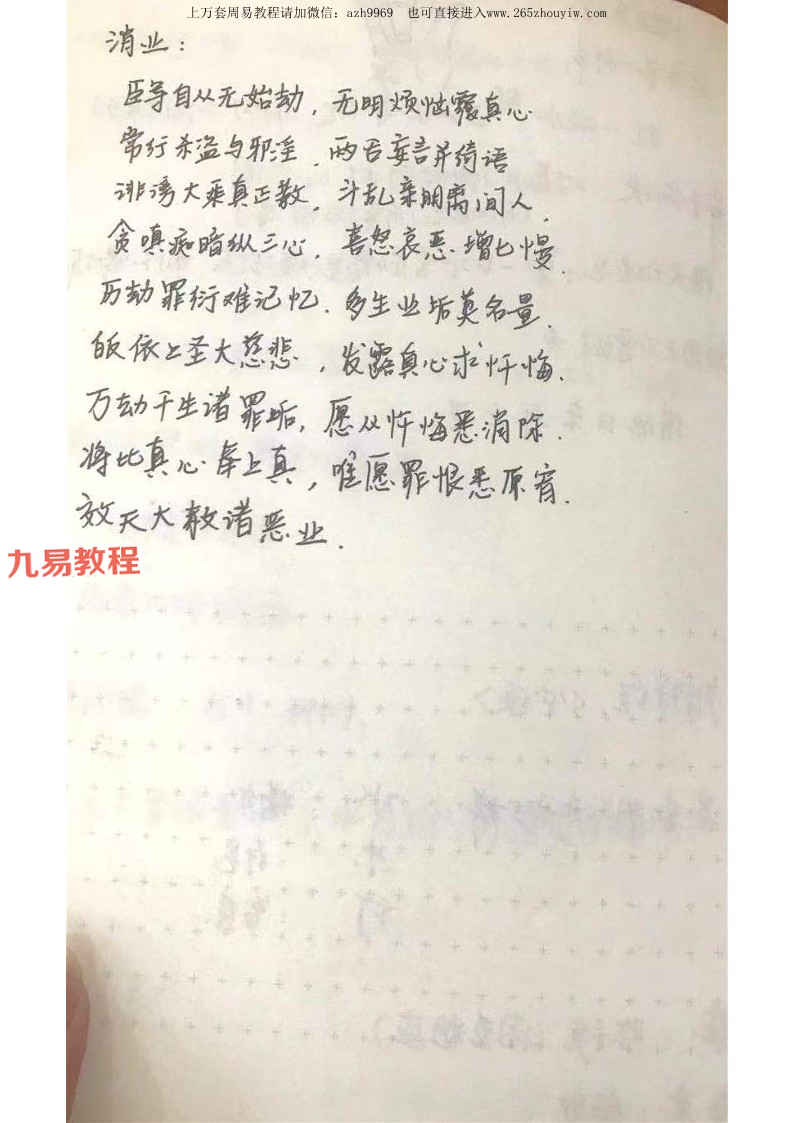 上万套周易教程请加微信: azh9969 也可直接进入www.265zhouyiw.com
消业:
臣等自从无始劫, 无明烦恼覆真心
常行杀盗与邪淫, 两舌妄言并绮语
诽谤大乘真正教, 斗乱亲朋离间人,
贪嗔痴暗纵三心, 喜怒哀恶增七慢.
历劫罪衍难记忆. 多生业垢莫名量.
皈依上圣大慈悲, 发露真心求忏悔.
万劫千生诸罪垢, 愿从忏悔悉消除.
将比真心奉上真, 唯愿罪恨悉原宥.
效天大赦诸恶业.
九易教程